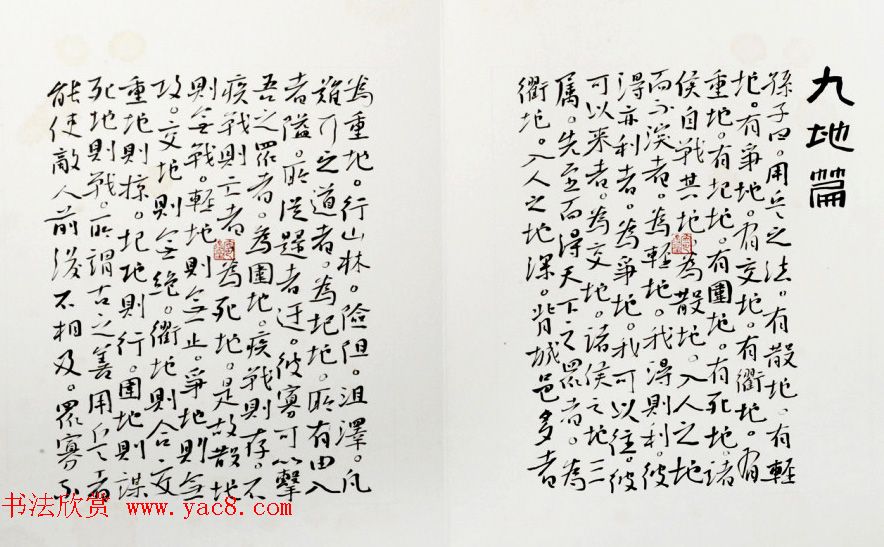 九地篇
孫子曰。用兵之法。有散地。有輕
地。有爭地。有交地。有衢地。有
重地。有圮地。有圍地。有死地。諸
侯自戰其地為散地。入人之地
而不深者。為輕地。我得則利。彼
得亦利者。為爭地。我可以往。彼
可以来者。為交地。諸侯之地三
属。先至而得天下之眾者。為
衢地。入人之地深。背城邑多者
為重地。行山林。險阻。沮澤。凡
難行之道者。為圮地。所有由入
者隘。所從歸者迂。彼寡可以擊
吾之眾者。為圍地。疾戰則存。不
疾戰則亡者為死地。是故散地
則無戰。輕地則無止。爭地則無
攻。交地則無絕。衢地則合交
重地則掠。圮地則行。圍地則謀
死地則戰。所謂古之善用兵者
能使敵人前後不相及。眾寡不
书法欣赏 www.yac8.com